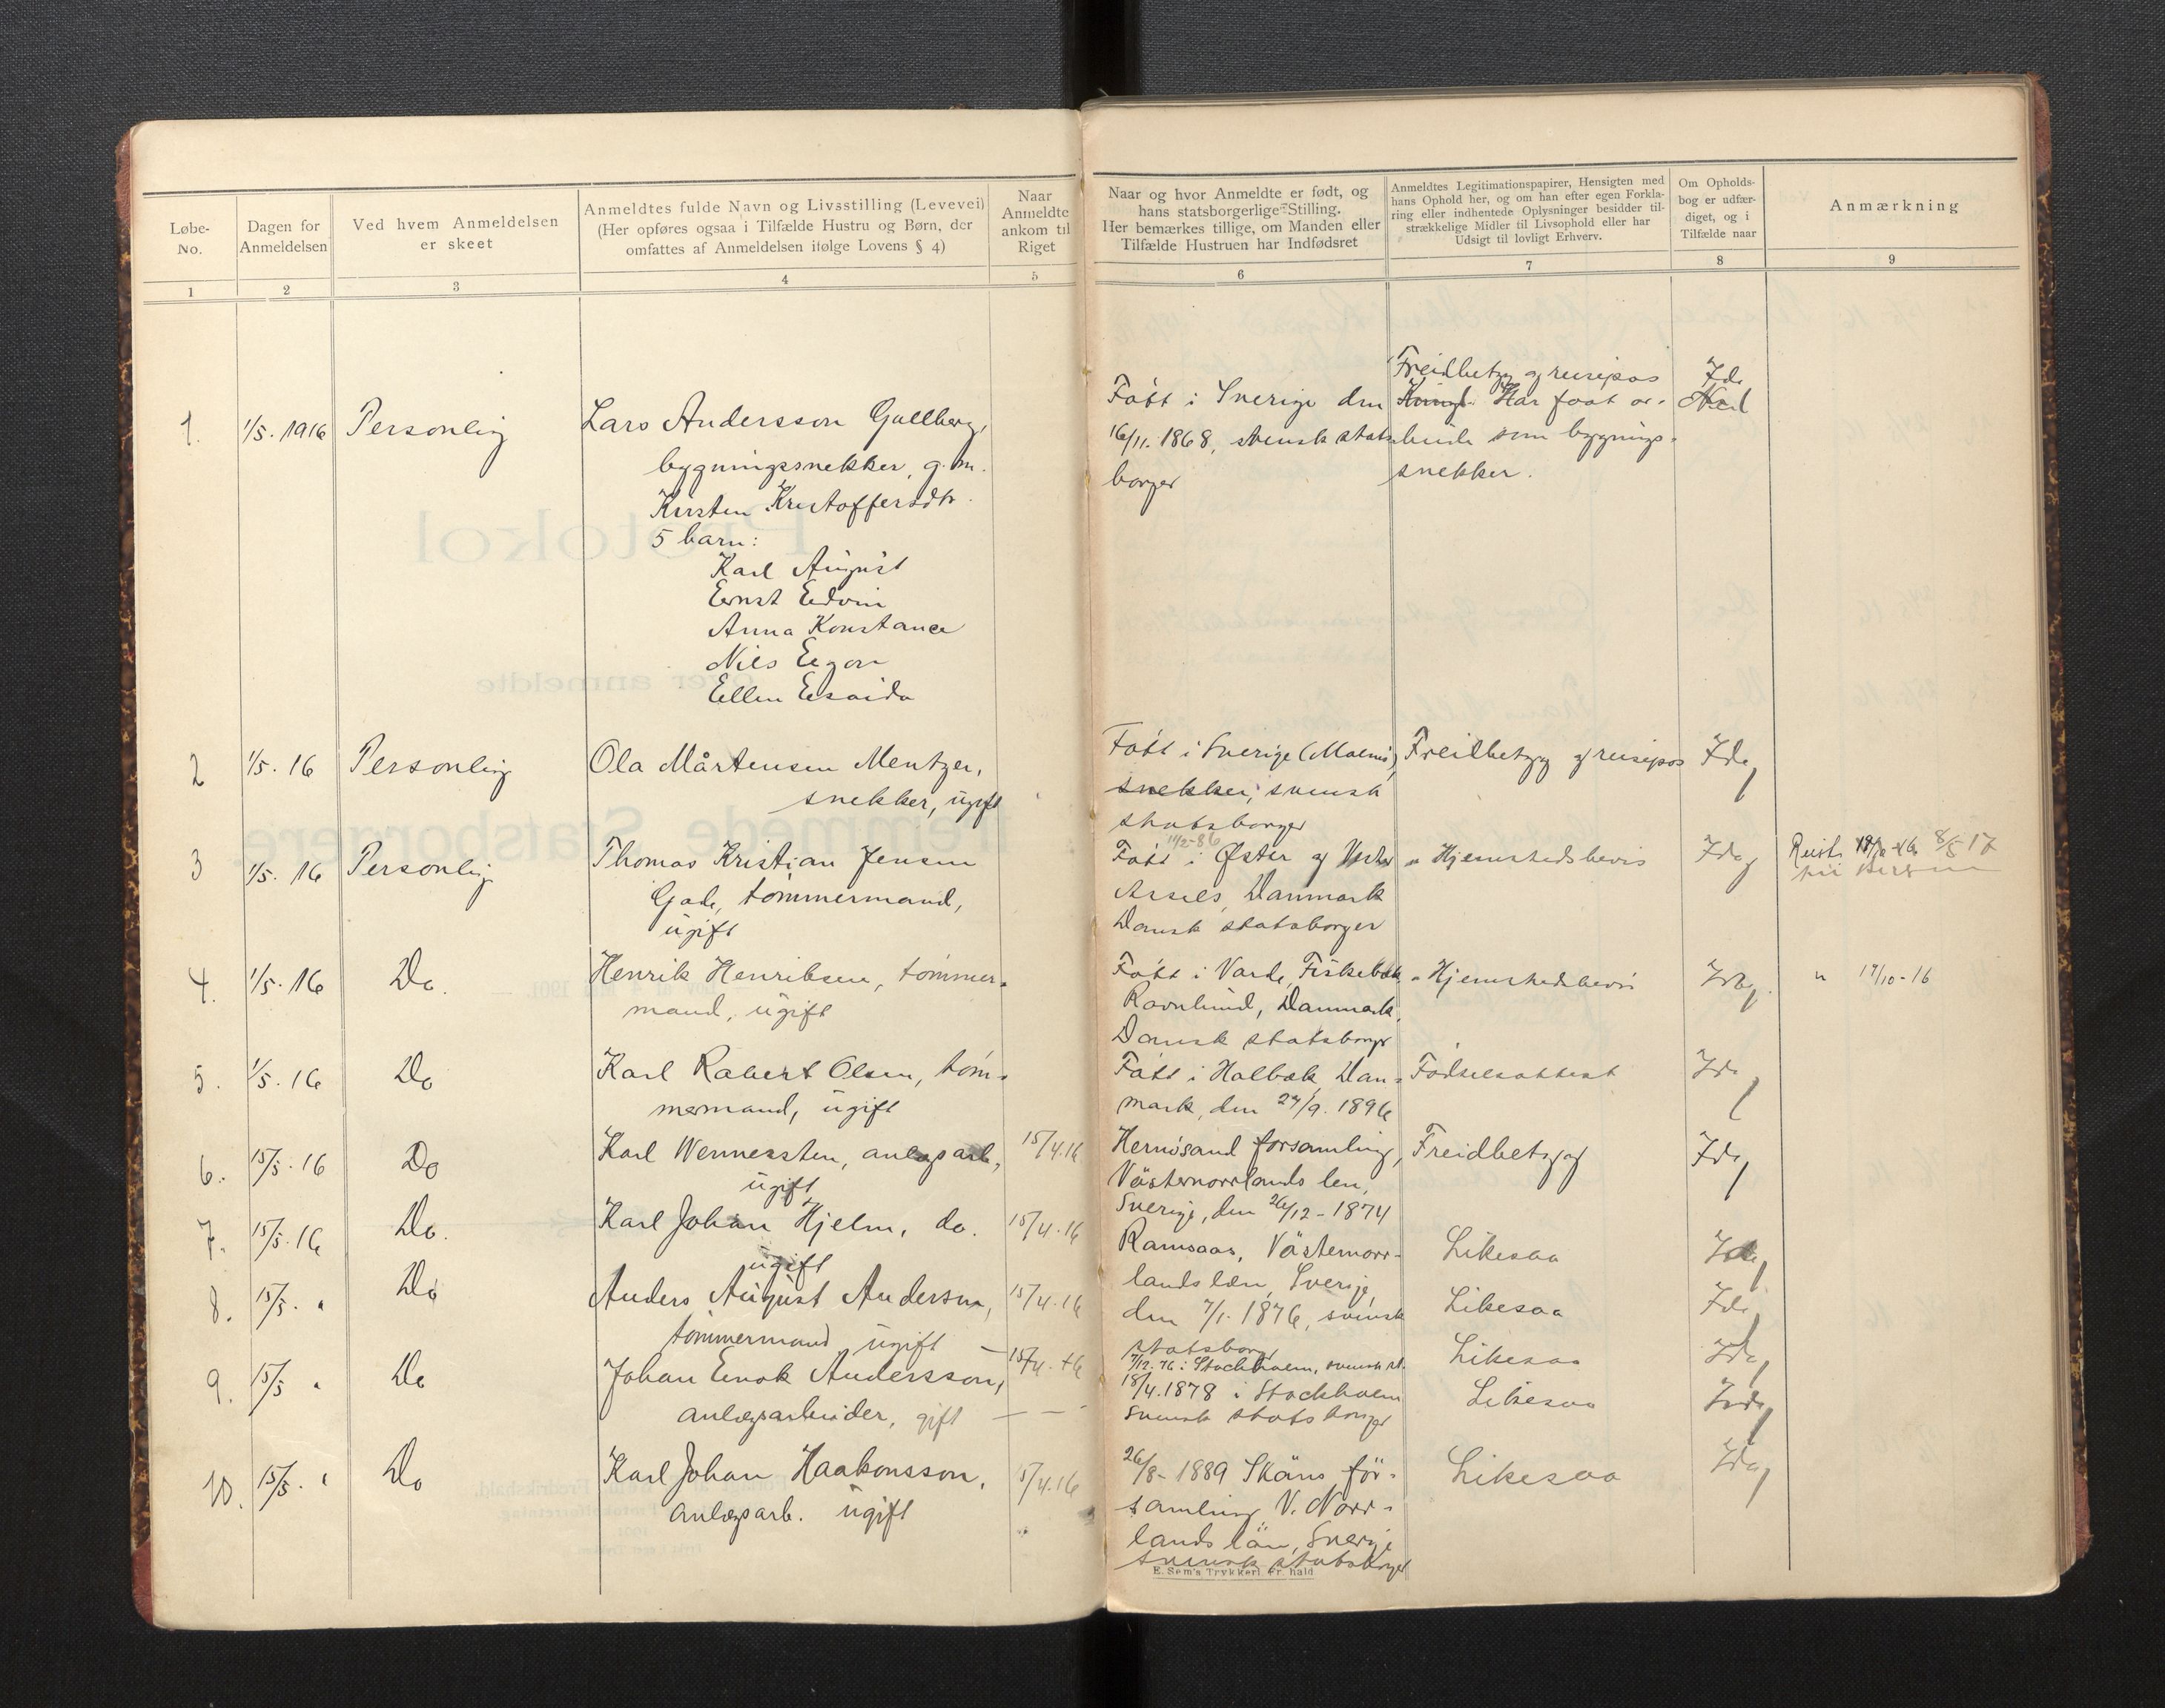 Løbe-
No.
Dagen for
Anmeldelsen
Ved hvem Anmeldelsen
er skeet
Anmeldtes fulde Navn og Livsstilling (Levevei)
(Her opføres ogsaa i Tilfælde Hustru og Børn, der
omfattes af Anmeldelsen ifølge Lovens § 4)
Naar
Anmeldte
ankom til
Riget
Naar og hvor Anmeldte er født, og
hans statsborgerlige Stilling.
Her bemærkes tillige, om Manden eller
Tilfælde Hustruen har Indfødsret
Anmeldtes Legitimationspapirer, Hensigten med
hans Ophold her, og om han efter egen Forkla-
ring eller indhentede Oplysninger besidder til-
strækkelige Midler til Livsophold eller har
Udsigt til lovligt Erhverv.
Om Opholds-
bog er udfær-
diget, og i
Tilfælde naar
Anmærkning
1 2 3 4 5 6 7 8 9
1. 1/5. 1916 Personlig
Lars Andersson Gullberg,
bygningssnekker, g. m.
Kristoffersdtr.
5 barn:
Karl August
Ernst Edvin
Anna Konstance
Nils Egon
Ellen
Født i Sverige den
16/11. 1868, svensk stats
borger
Freidbetyg og reisepas
Har faat ar-
beide som bygnings-
snekker.
Ida
2 1/5. 16 Personlig
Ola Mårtensen Mentzer,
snekker, ugift
Født i Sverige (Malmö),
snekker, svensk
statsborger
Freidbetyg og reisepas
Ida
3 1/5. 16 Personlig
Thomas Kristian Jensen
Gade, tømmermand,
ugift
11/2-86
Født i Øster og Vester
Assels, Danmark
Dansk statsborger
" Hjemstedsbevis
Ida
Reist 8/5 17
4. 1/5. 16 Do.
Henrik Henriksen, tømmer-
mand, ugift
Født i Varde, Fiskebæk
Ravnlund, Danmark,
Dansk statsborger
" Hjemstedsbevis
" 17/10-16
5. 1/5. 16 Do
Karl Robert Olsen, tøm-
mermand, ugift
Født i Holbæk, Dan-
mark, den 24/9. 1896
Fødselsattest
Ida
6. 15/5. 16 Do
Karl Wennersten, anlægsarb.,
ugift
15/4.16
Hernösand forsamling,
Västernorrlands len,
Sverige, den 26/12-1874
Freidbetyg
Ida
7. 15/5. 16 Do.
Karl Johan Hjelm, do.
ugift
15/4.16
Ramsaas, Västernorr-
lands læn, Sverige,
den 7/1. 1876, svensk
statsborger
Likesaa
Ida
8. 15/5. " Do
Anders August Anderson,
tømmermand, ugift
15/4.16
7/12.76 i Stockholm, svensk st.
Likesaa
Ida
9. 15/5 " Do
Johan Enok Andersson,
anlægsarbeider, gift
15/4.16
18/4.1878 i Stockholm
svensk statsborger
Likesaa
Ida
Likesaa
Ida
10. 15/5. " Do
Karl Johan Haakonsson,
anlægsarb. ugift
15/4.16
26/8-1889 Skäns för-
samling V. Norr-
lands län, Sverige
svensk statsborger
Likesaa
Ida
E. Sem's Trykkeri. Fr. hald